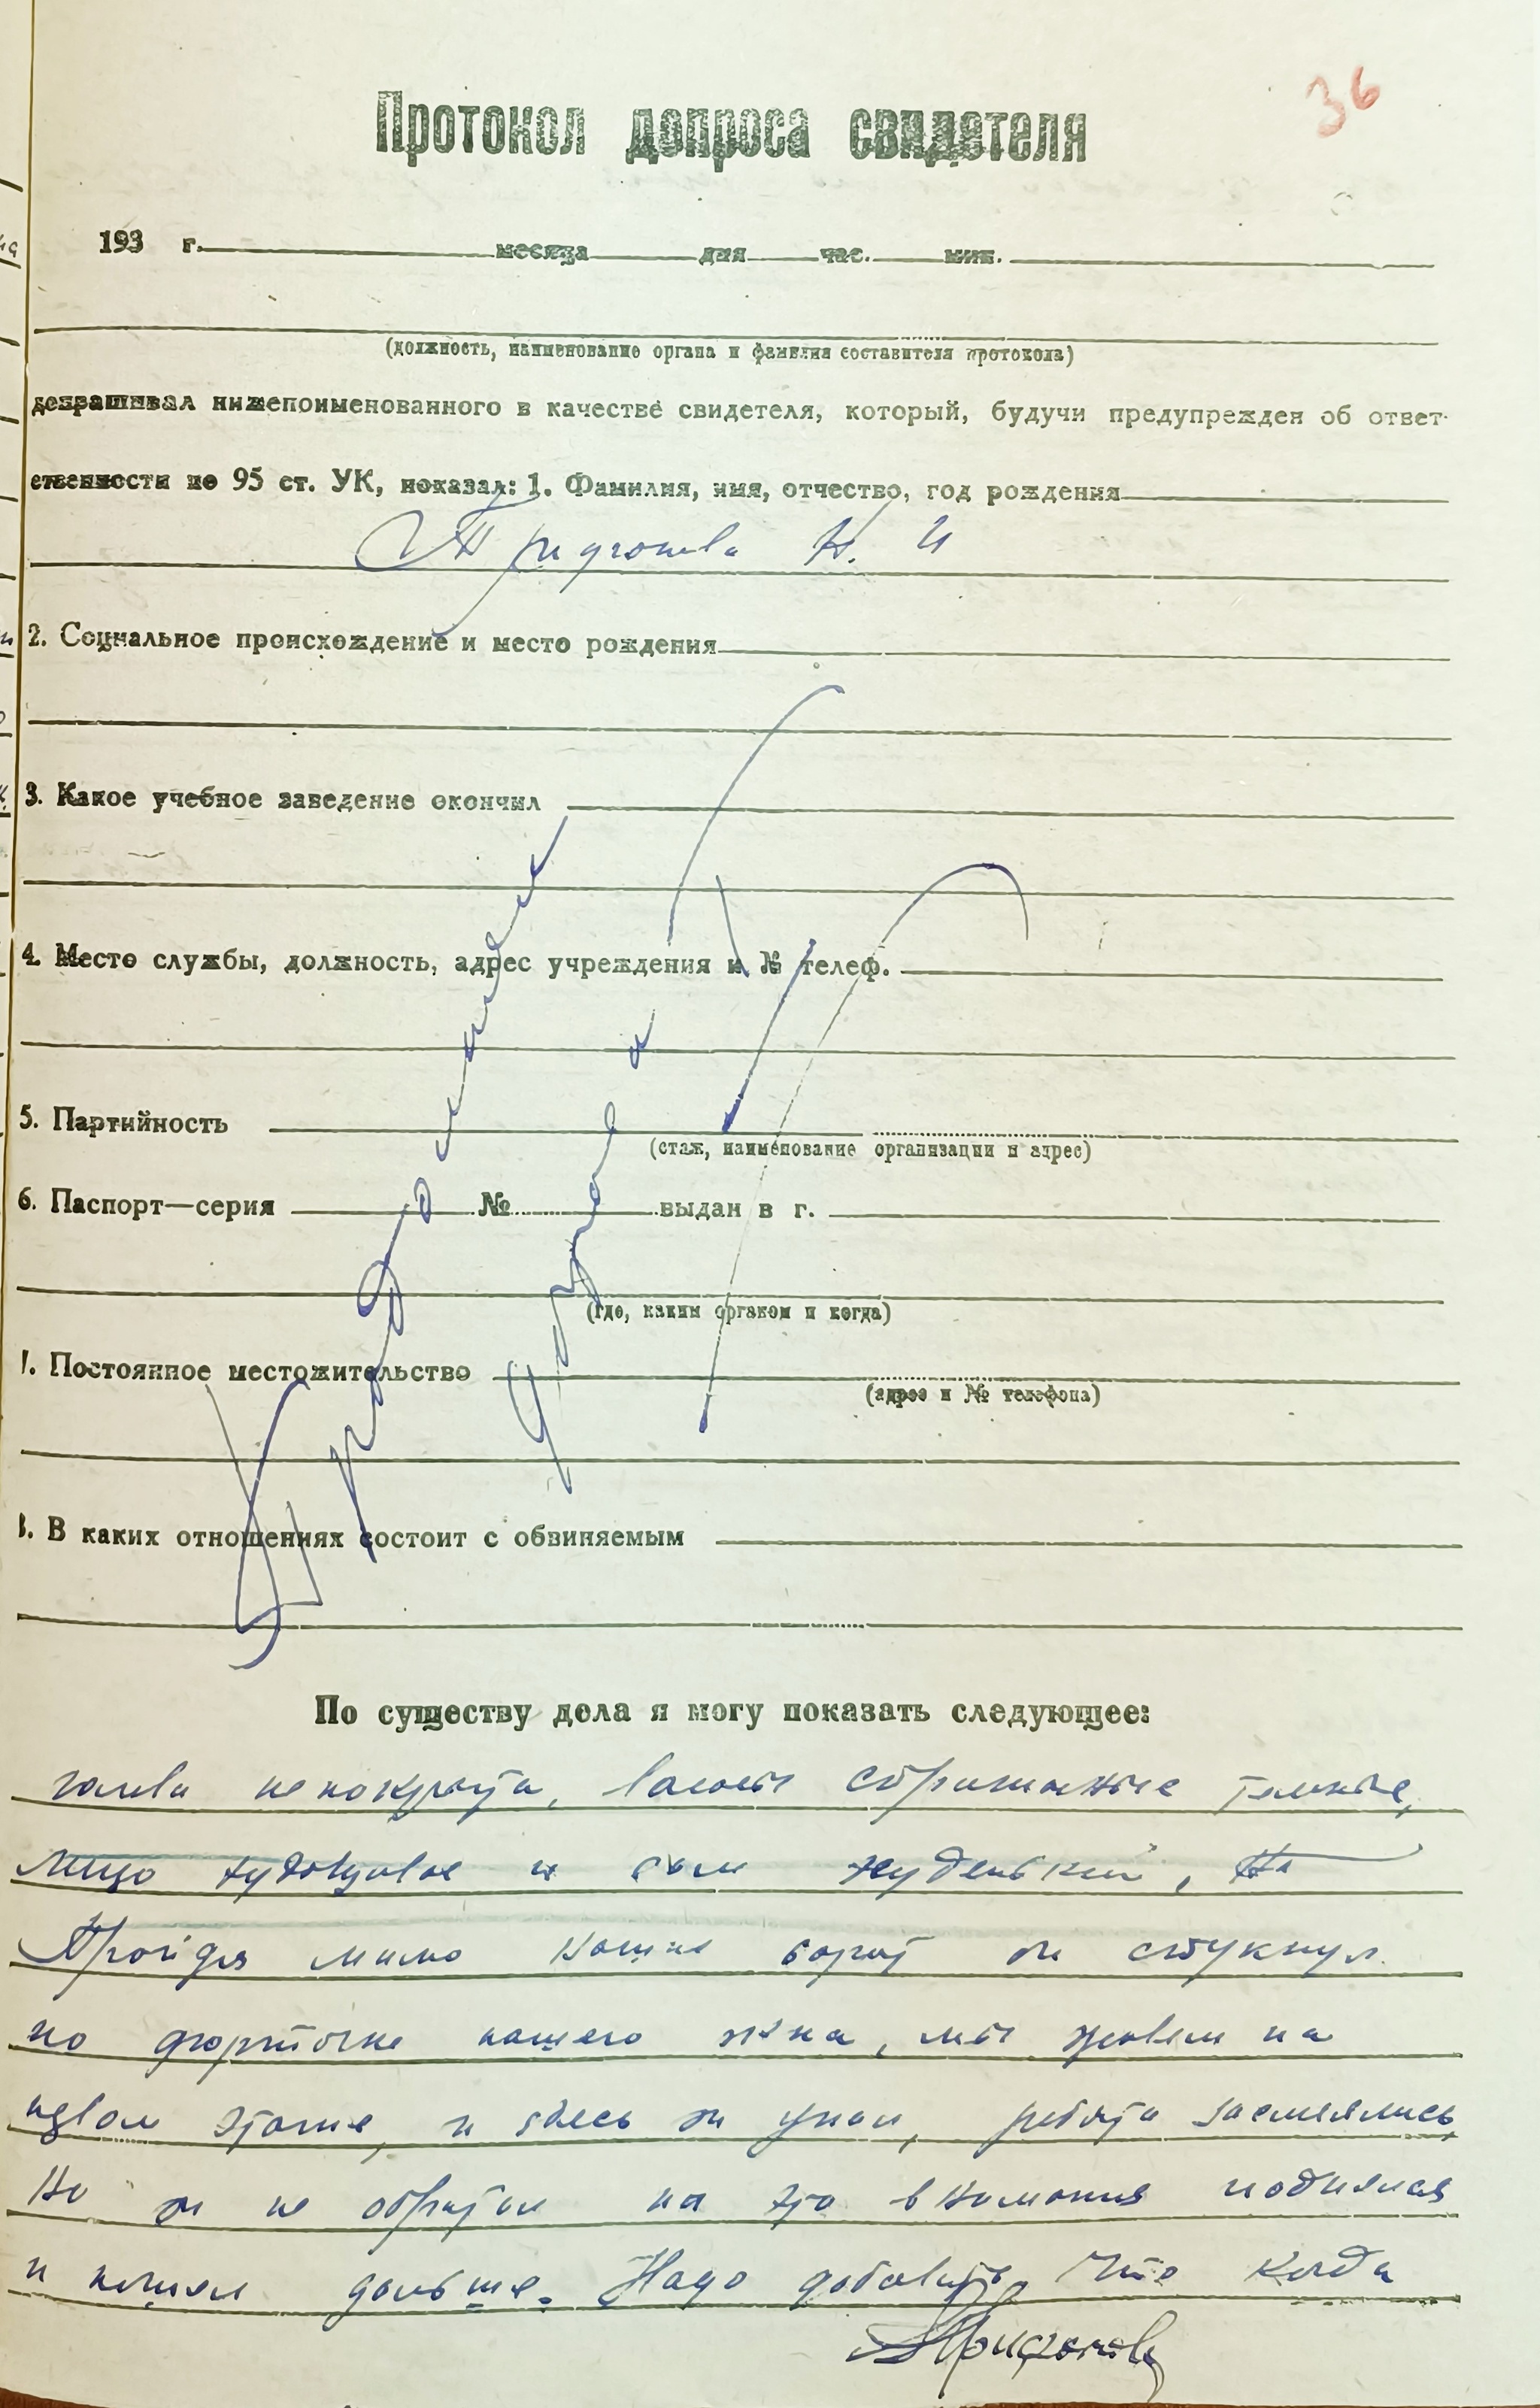 36
Протокол допроса свидетеля
193 г. месяца дня час. мин.
(должность, наименование органа и фамилия составителя протокола)
допрашивал нижепоименованного в качестве свидетеля, который, будучи предупрежден об ответ-
ственности по 95 ст. УК, показал: 1. Фамилия, имя, отчество, год рождения
Н. И
2. Социальное происхождение и место рождения
3. Какое учебное заведение окончил
4. Место службы, должность, адрес учреждения и № телеф.
5. Партийность
(стаж, наименование организации и адрес)
6. Паспорт—серия № выдан в г.
(где, каким органом и когда)
7. Постоянное местожительство
(адрес и № телефона)
8. В каких отношениях состоит с обвиняемым
Продолжение
допроса
По существу дела я могу показать следующее:
голова не покрыта, волосы стриженные темные,
лицо худощавое и сам худенький,
Пройдя мимо наших ворот он стукнул
по форточке нашего окна, мы живем на
первом этаже, и здесь он упал, ребята засмеялись
Но он не обратил на это внимания поднялся
и пошел дальше. Надо добавить что когда